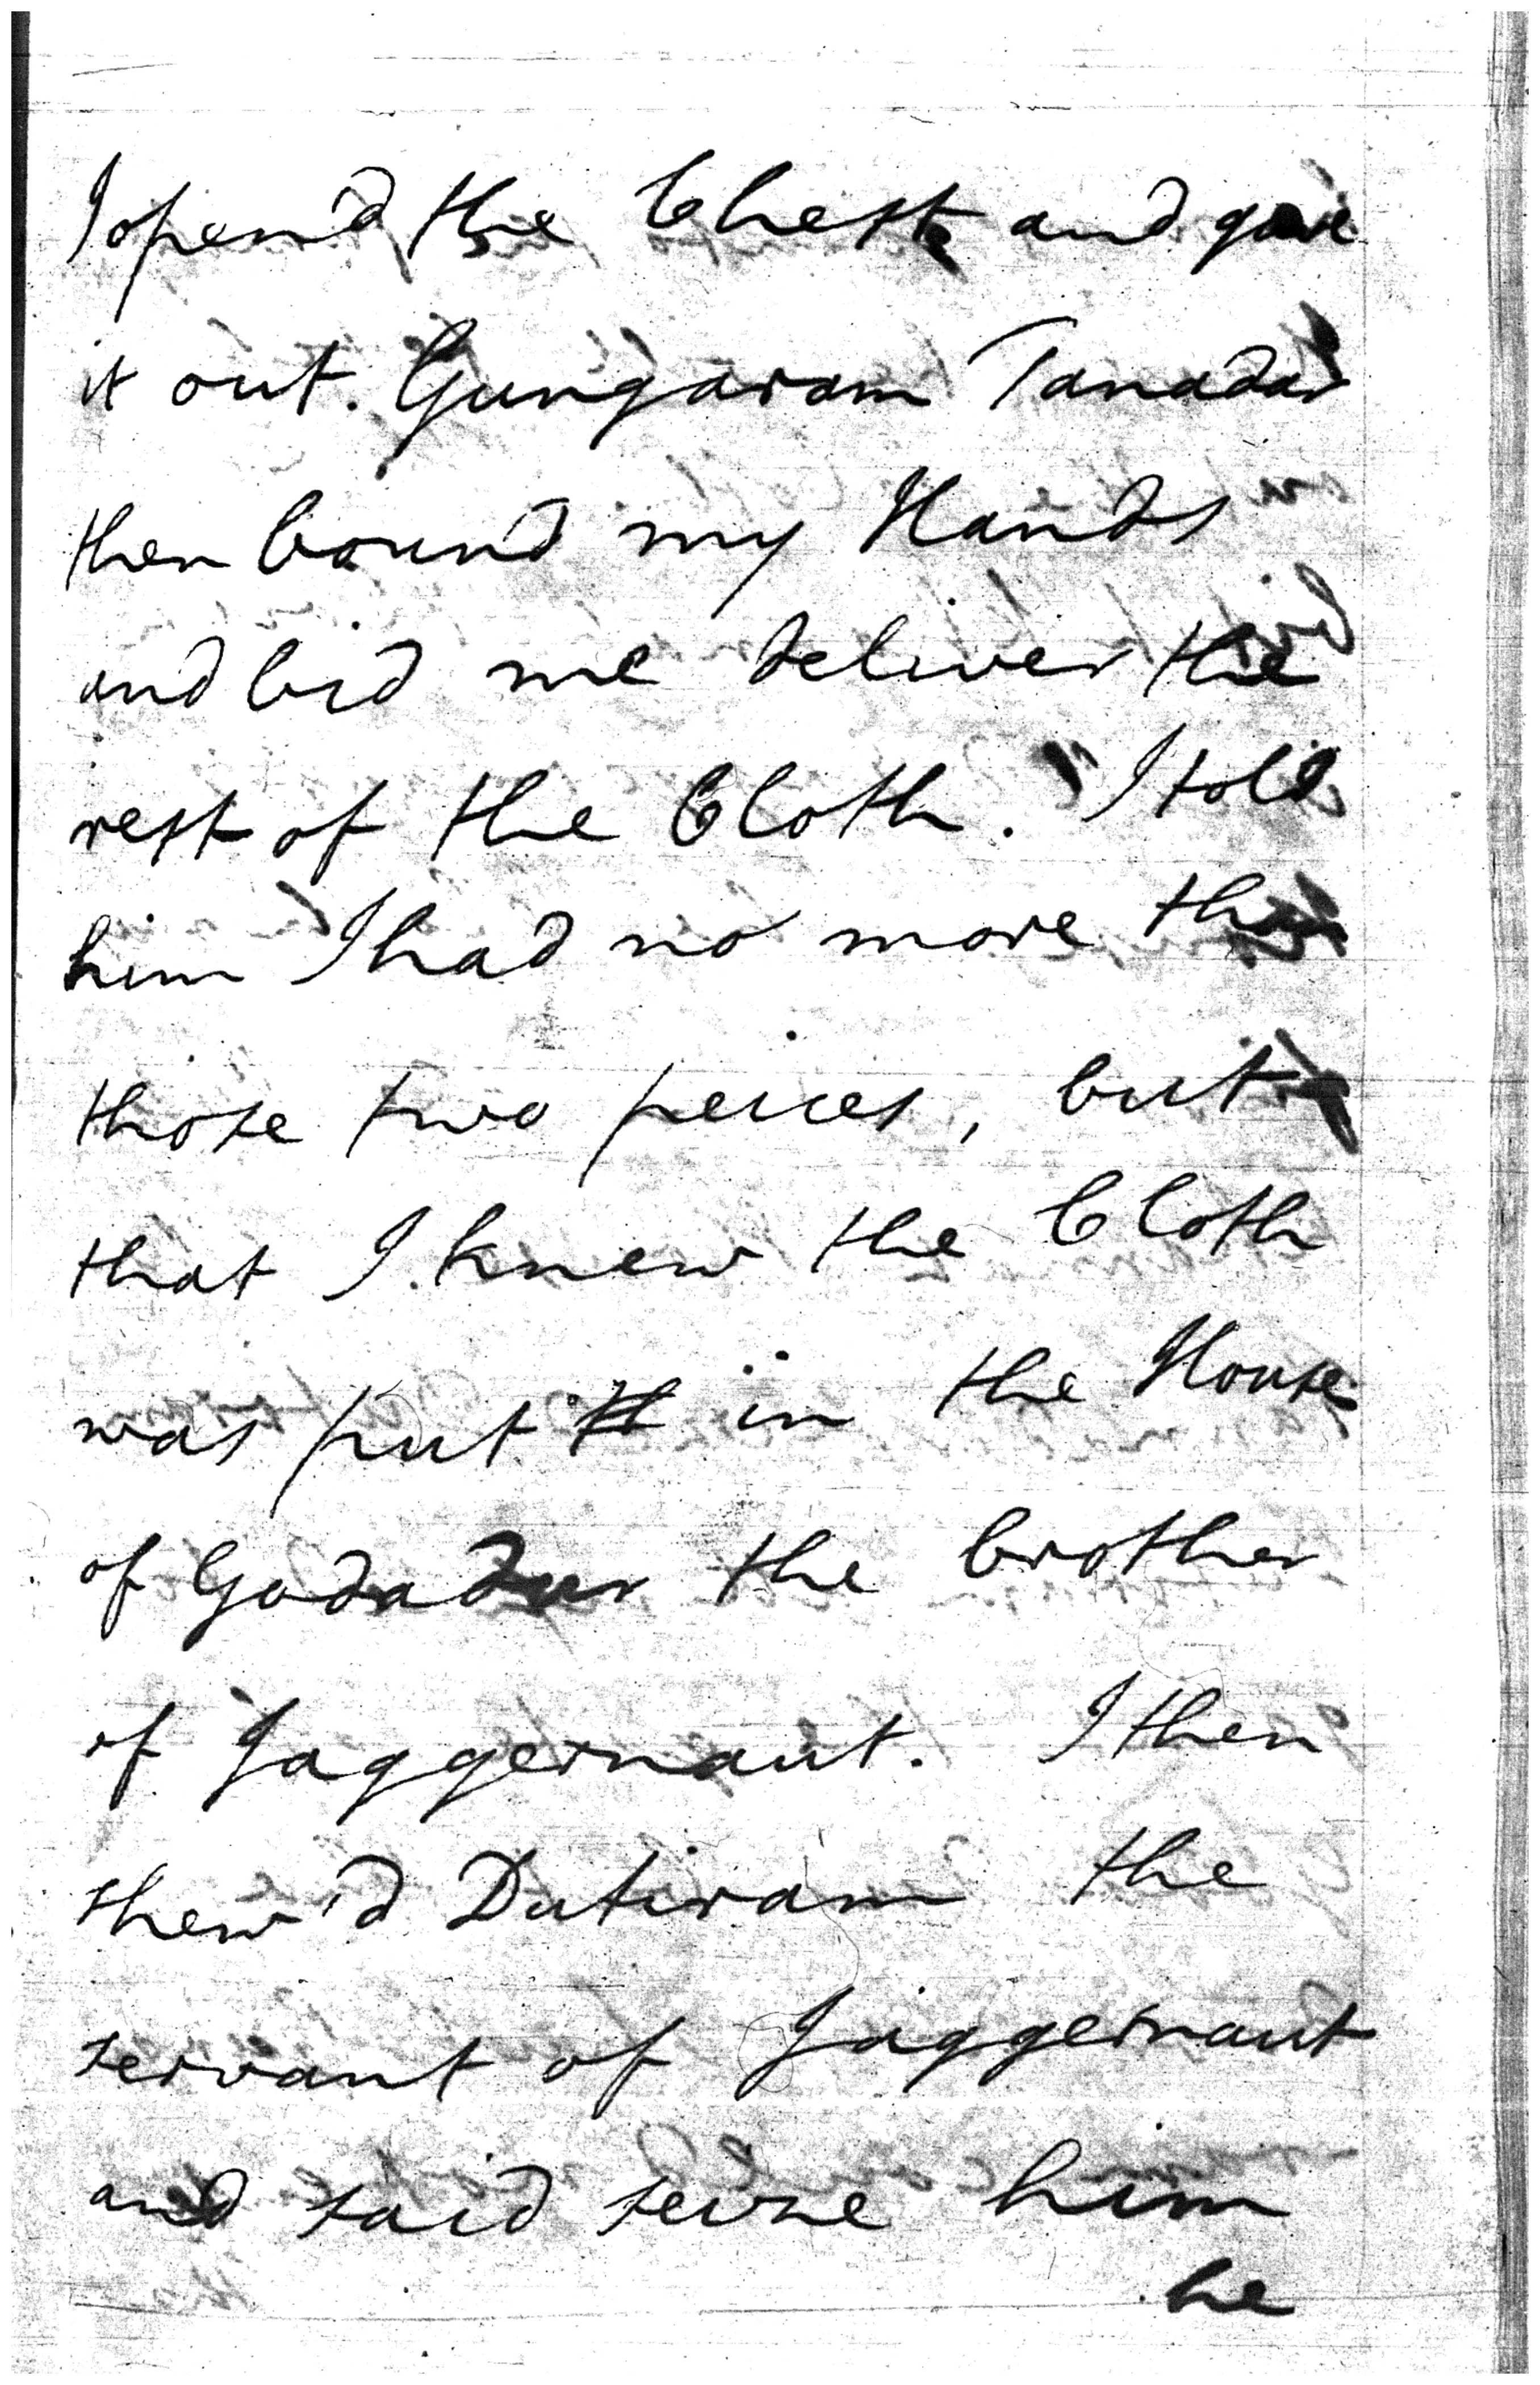 I open'd the Chest and gave
it out. Gungaram Tanadar
then bound my Hands
and bid me deliver the
rest of the Cloth. I told
him I had no more than
those two peices, but
that I knew the Cloth
was put in the House
of Gadadur the brother
of Jaggernaut. I then
shew'd Dutiram the
servant of Jaggernaut
and said seize him
he